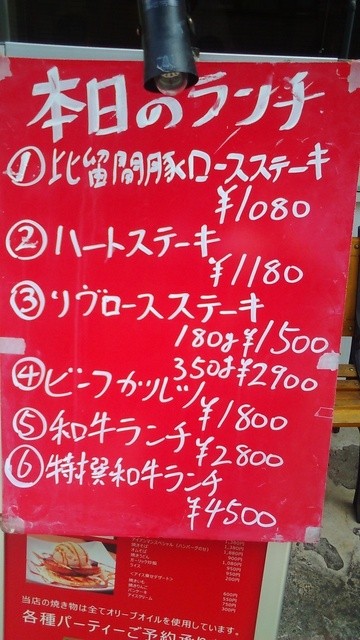 本日のランチ
① 比留間豚ロースステーキ
¥1080
② ハートステーキ
¥1180
③ リヴロースステーキ
180g ¥1500
350g ¥2900
④ ビーフカツレツ
¥1800
⑤ 和牛ランチ
¥2800
⑥ 特撰和牛ランチ
¥4500
当店の焼き物は全てオリーブオイルを使用しています。
各種パーティーご予約承り